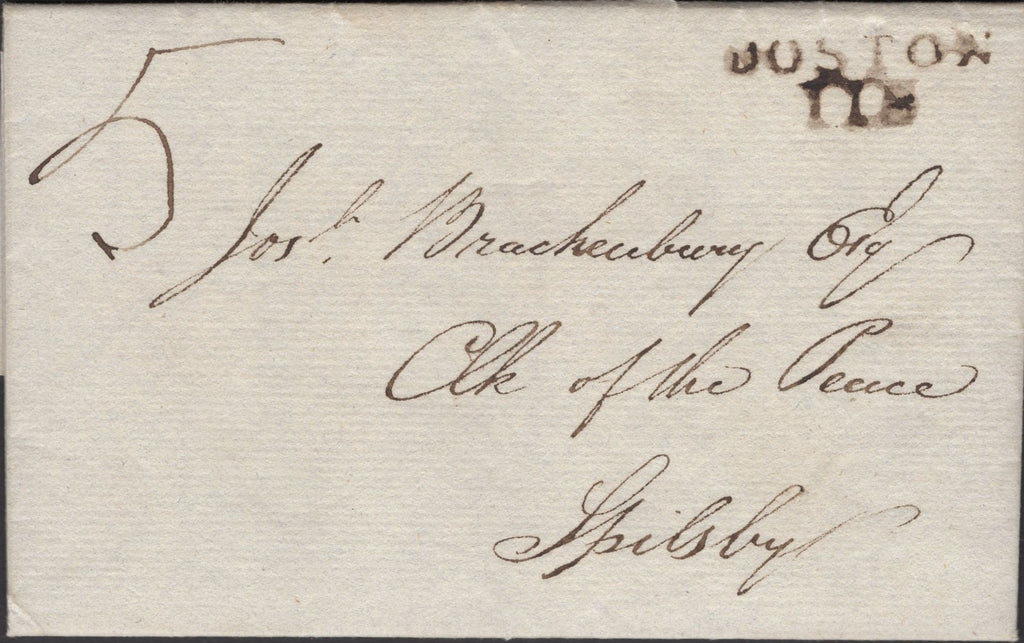 BOSTON
5
Josh. Brackenbury Esq
Clk of the Peace
Spilsby